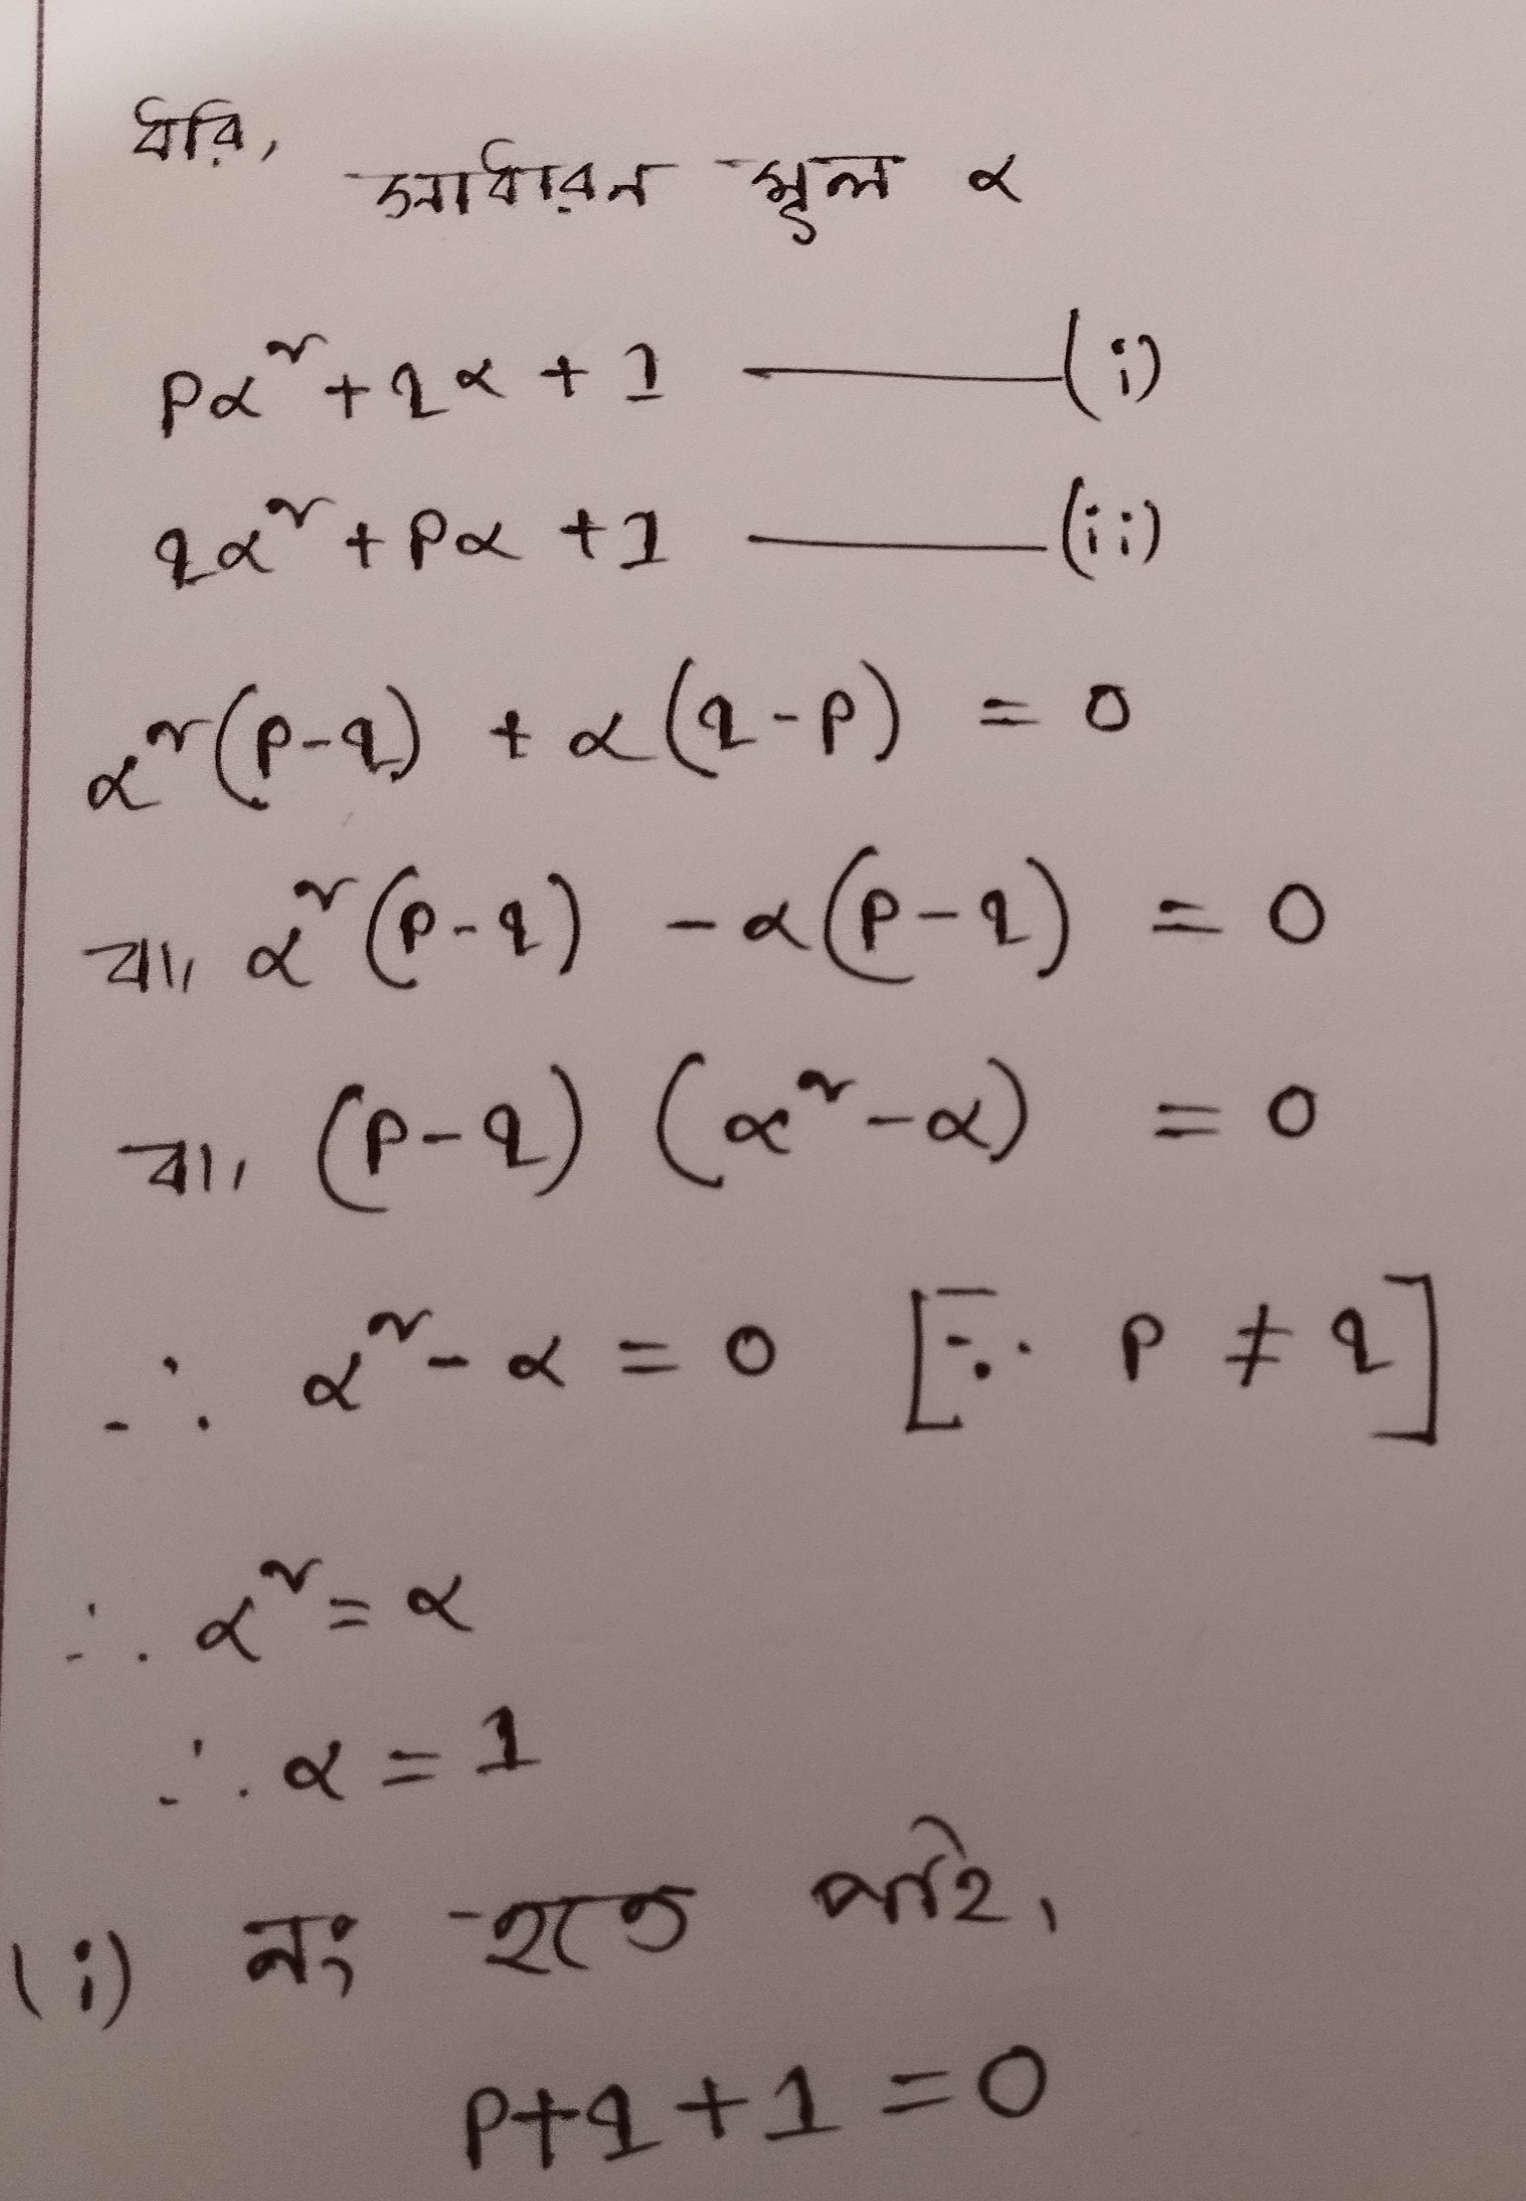 ধরি,
সাধারন মূল α
pα² + qα + 1 ——— (i)
qα² + pα + 1 ——— (ii)
α²(p-q) + α(q-p) = 0
বা, α²(p-q) - α(p-q) = 0
বা, (p-q) (α²-α) = 0
∴ α² - α = 0 [∵ p ≠ q]
∴ α² = α
∴ α = 1
(i) নং হতে পাই,
p+q+1=0